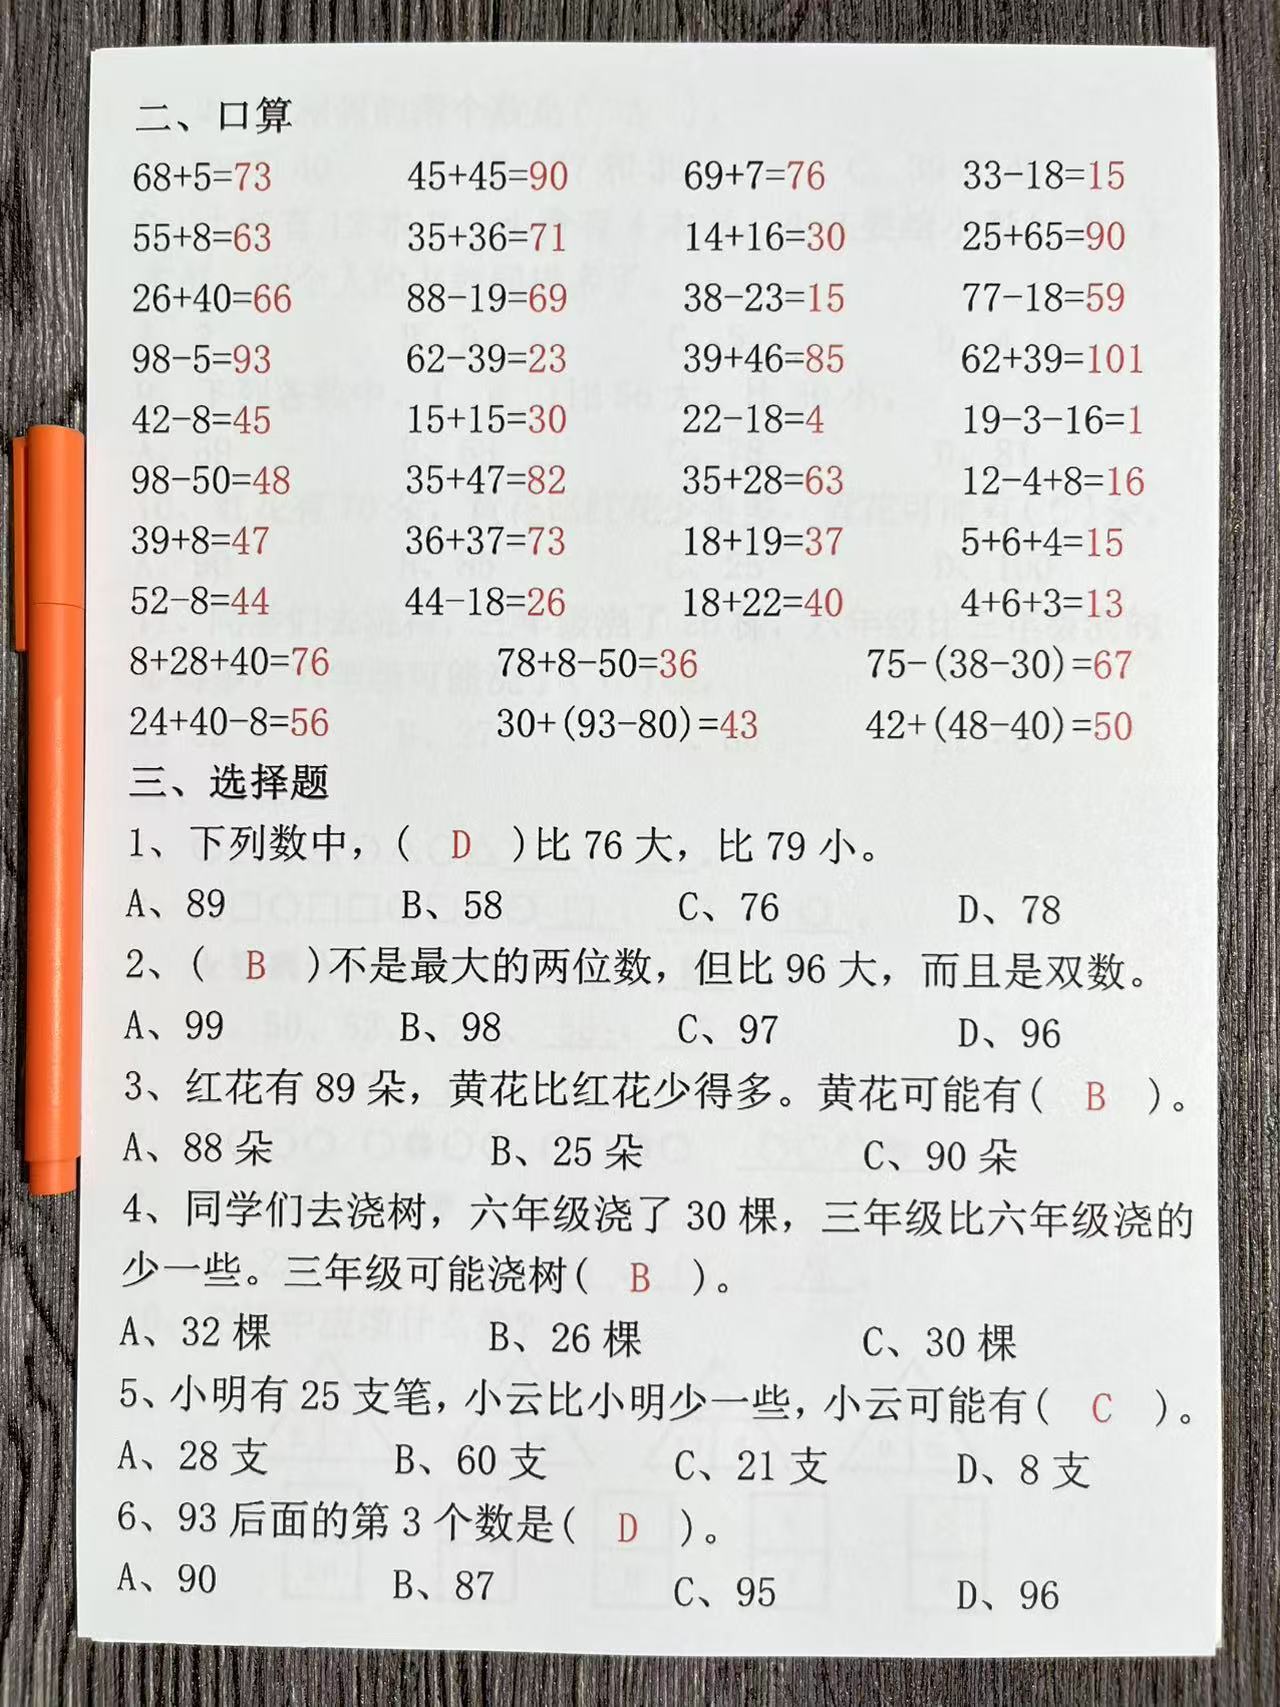 二、口算
68+5=73 45+45=90 69+7=76 33-18=15
55+8=63 35+36=71 14+16=30 25+65=90
26+40=66 88-19=69 38-23=15 77-18=59
98-5=93 62-39=23 39+46=85 62+39=101
42-8=45 15+15=30 22-18=4 19-3-16=1
98-50=48 35+47=82 35+28=63 12-4+8=16
39+8=47 36+37=73 18+19=37 5+6+4=15
52-8=44 44-18=26 18+22=40 4+6+3=13
8+28+40=76 78+8-50=36 75-(38-30)=67
24+40-8=56 30+(93-80)=43 42+(48-40)=50
三、选择题
1、下列数中，( D )比 76 大，比 79 小。
A、89 B、58 C、76 D、78
2、( B )不是最大的两位数，但比 96 大，而且是双数。
A、99 B、98 C、97 D、96
3、红花有 89 朵，黄花比红花少得多。黄花可能有( B )。
A、88 朵 B、25 朵 C、90 朵
4、同学们去浇树，六年级浇了 30 棵，三年级比六年级浇的
少一些。三年级可能浇树( B )。
A、32 棵 B、26 棵 C、30 棵
5、小明有 25 支笔，小云比小明少一些，小云可能有( C )。
A、28 支 B、60 支 C、21 支 D、8 支
6、93 后面的第 3 个数是( D )。
A、90 B、87 C、95 D、96